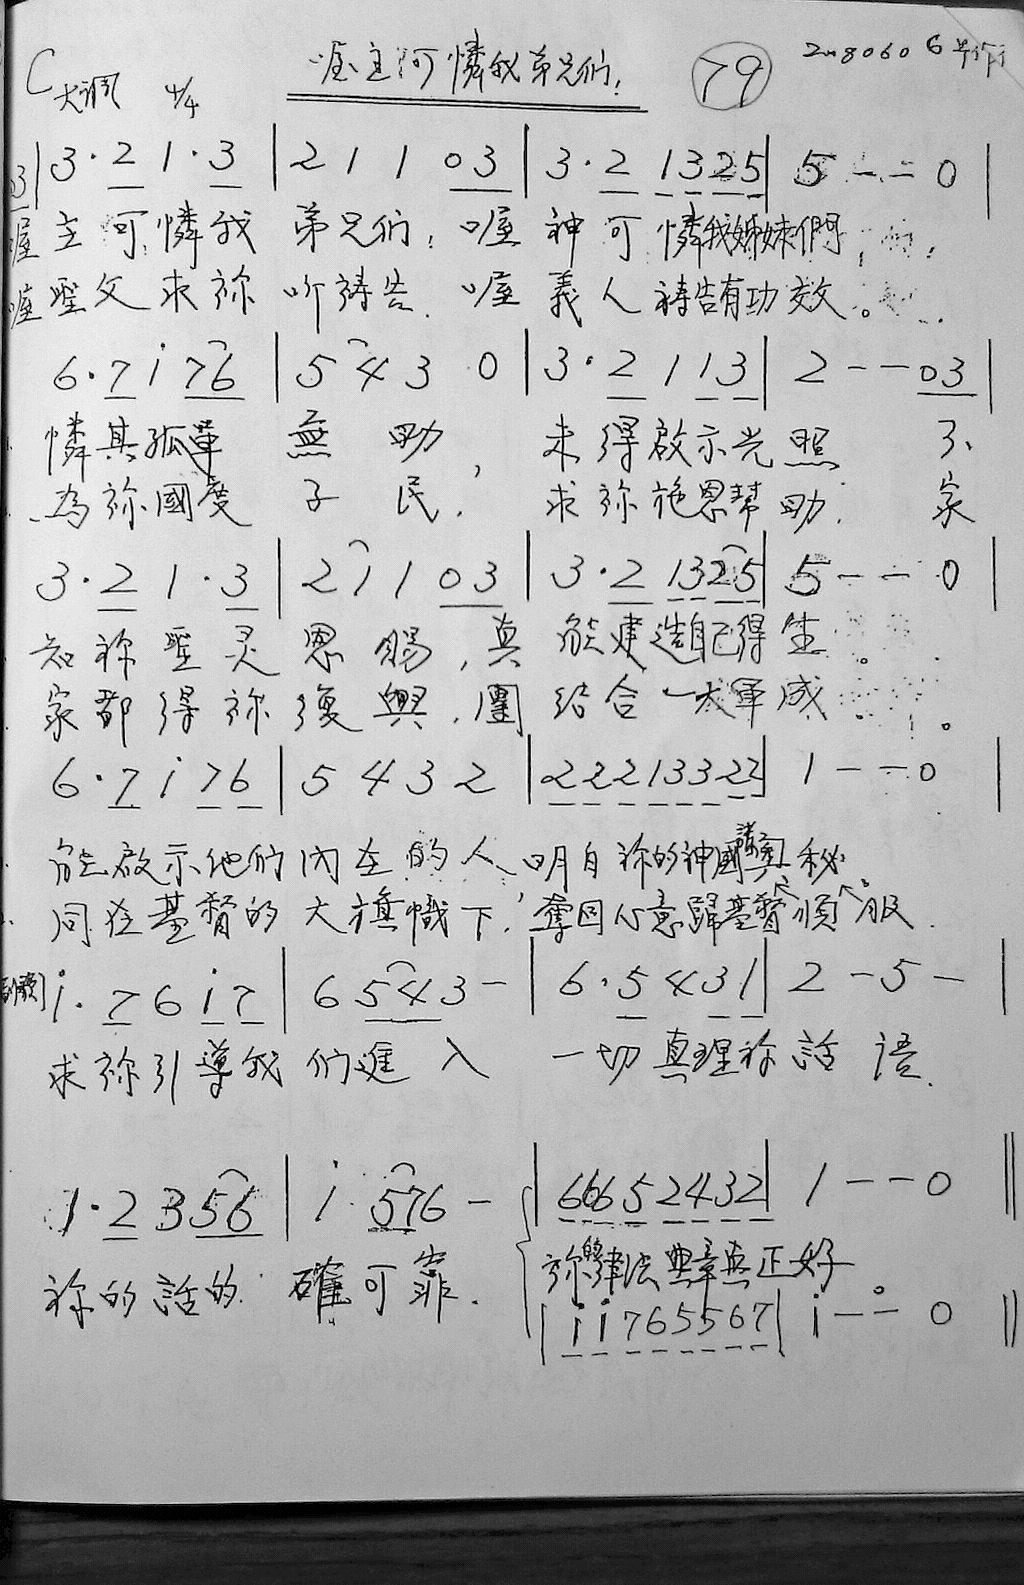 喔主可憐我弟兄們. 79
C大調 4/4
03 | 3·2 1·3 | 2 1 1 03 | 3·2 1325 | 5 - - 0 |
喔主可憐我弟兄们，喔神可憐我姊妹們
喔聖父求祢听祷告．喔義人祷告有功效。
6·7 i 76 | 5 4 3 0 | 3·2 1 13 | 2 - - 03 |
憐其孤單無助，未得啟示光照 不
為祢國度子民，求祢施恩幫助． 家
3·2 1·3 | 2 1 1 03 | 3·2 1325 | 5 - - 0 |
知祢聖灵恩賜，真能建造自己得生。
家都得祢復興．團结合一大軍成
6·7 i 76 | 5 4 3 2 | 22213322 | 1 - - 0 |
能啟示他们内在的人 明白祢的神國諸奧秘
同在基督的大旗幟下，奪回心意歸基督順服．
副歌 i·7 6 i7 | 6 543 - | 6·5 4 31 | 2 - 5 - |
求祢引導我们進入 一切真理祢話语．
1·2 3 56 | i 576 - | 66652432 | 1 - - 0 ||
祢的話的確可靠． 祢的律法典章真正好。
| i i 7 6 5 5 6 7 | i - - 0 ||